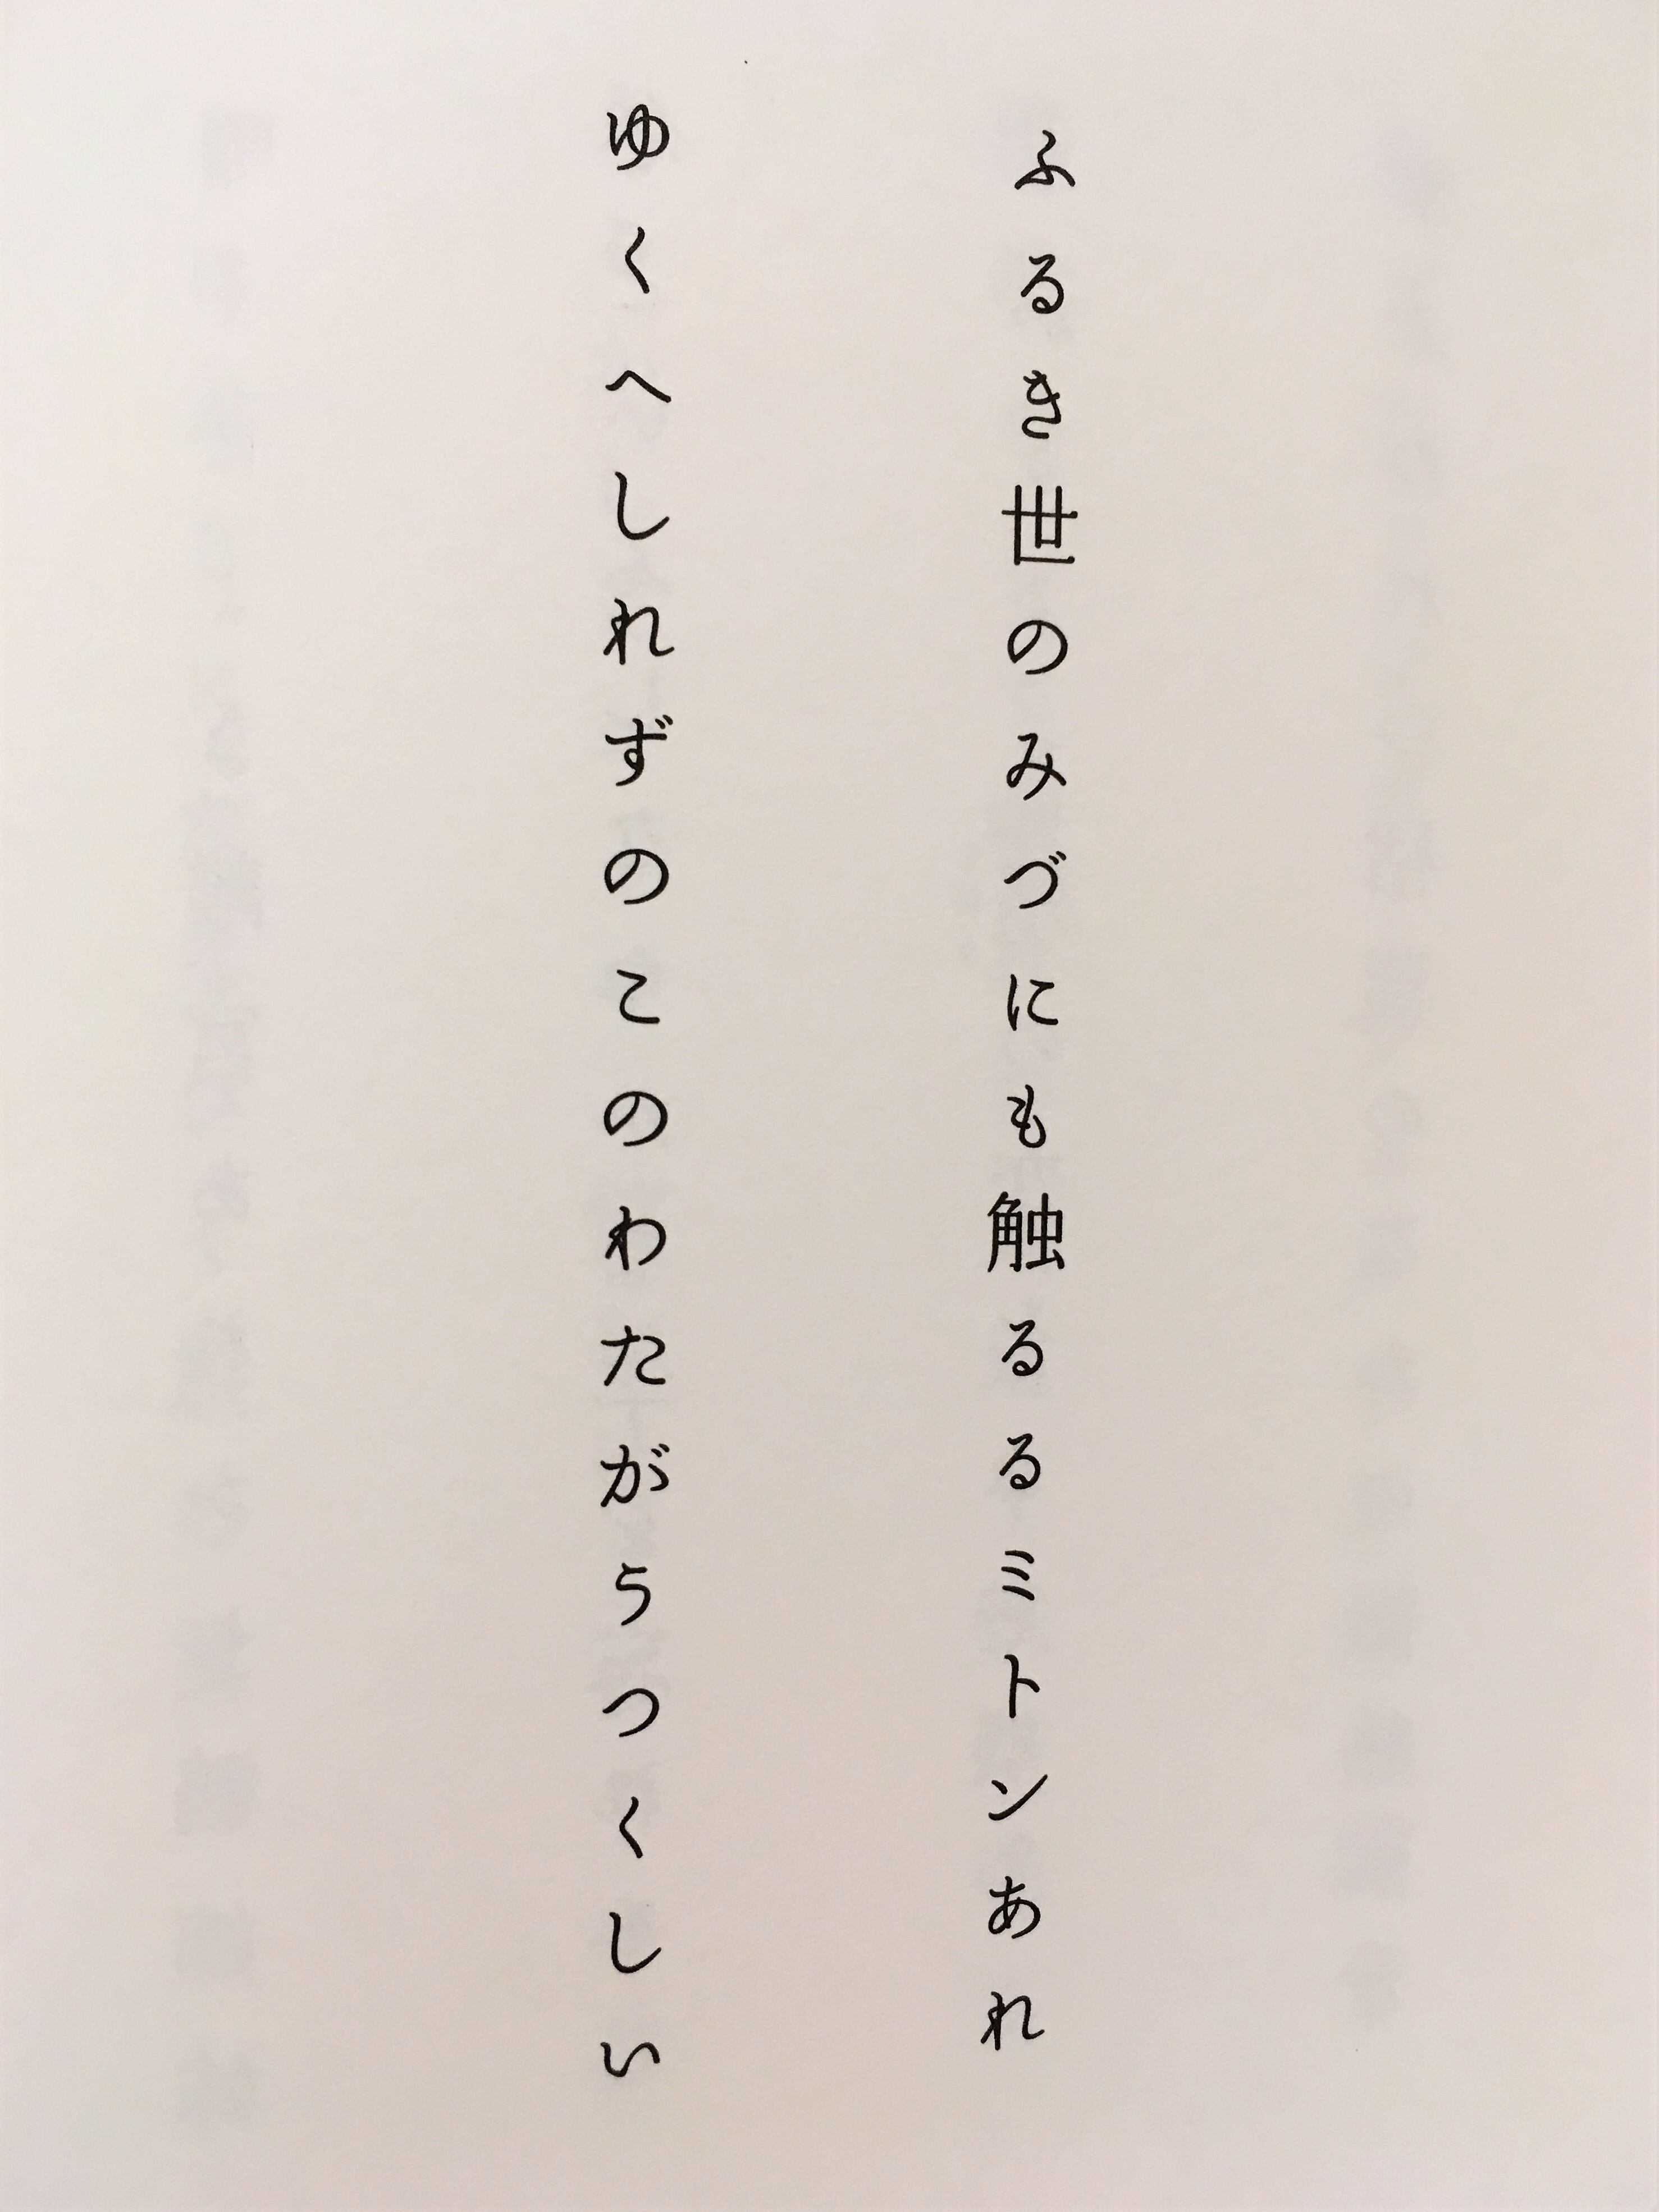 ふるき世のみづにも触るるミトンあれ
ゆくへしれずのこのわたがうつくしい